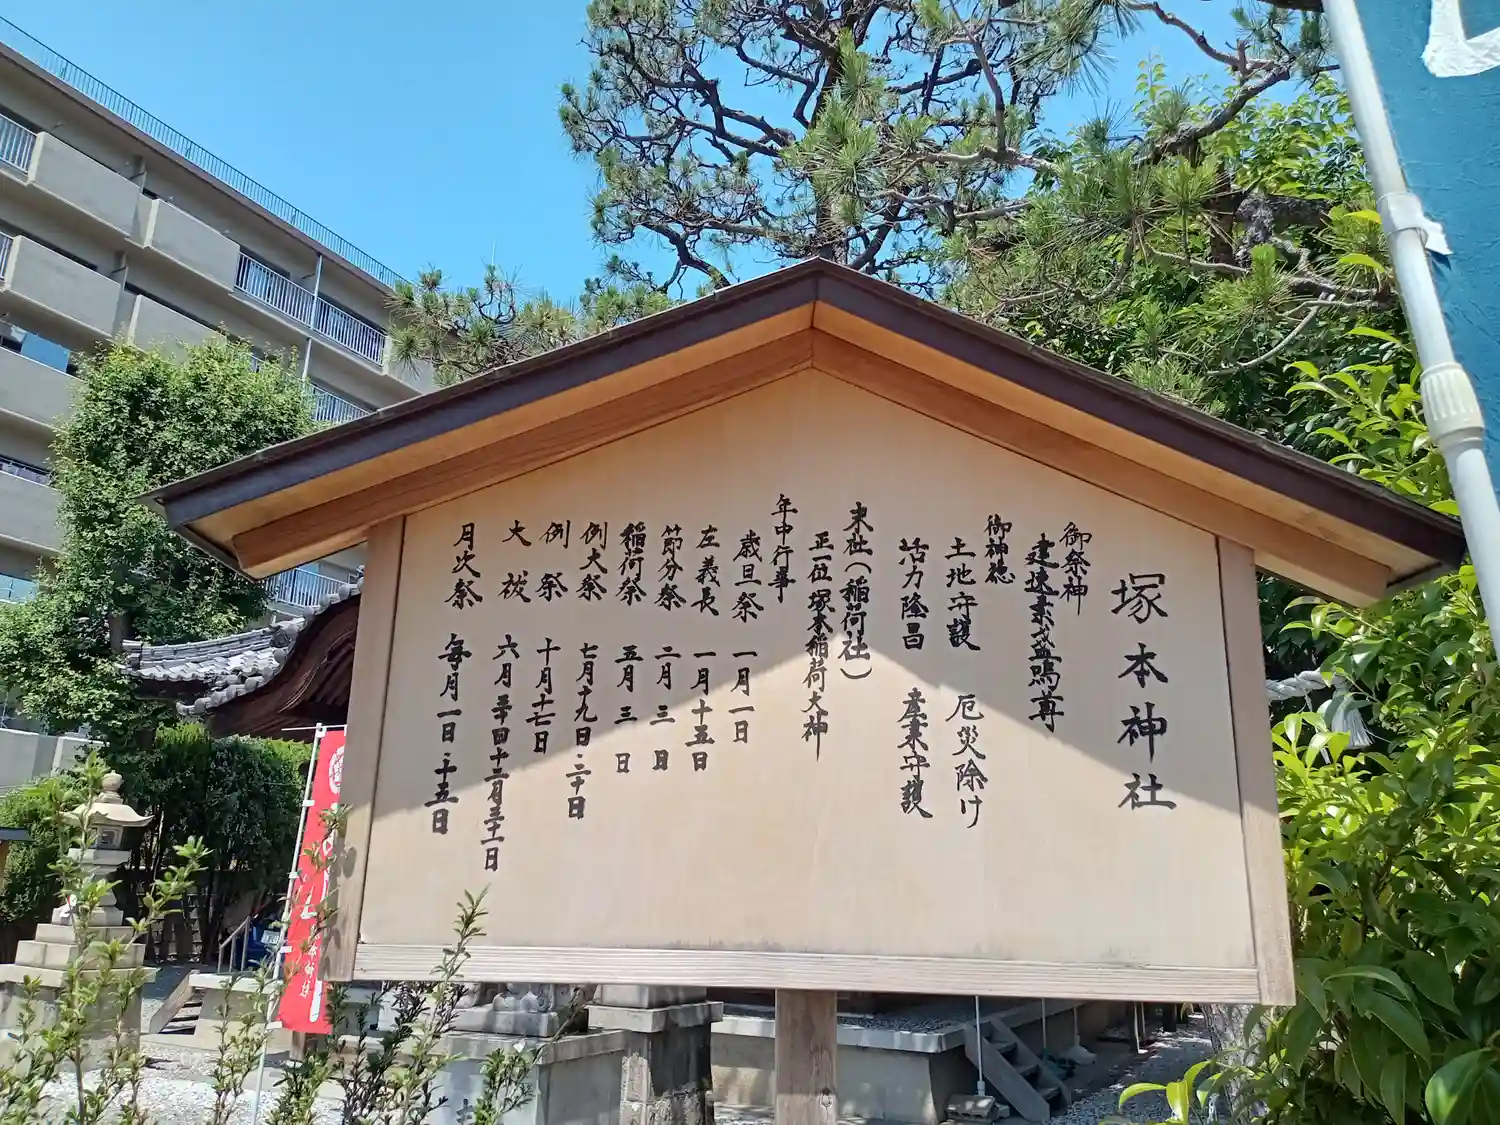 塚本神社
御祭神
建速素戔嗚尊
御神徳
土地守護 厄災除け
活力隆昌 産業守護
末社(稲荷社)
正一位塚本稲荷大神
年中行事
歳旦祭 一月一日
左義長 一月十五日
節分祭 二月三日
稲荷祭 五月三日
例大祭 七月十九日・二十日
例祭 十月十七日
大祓 六月三十日 十二月三十一日
月次祭 毎月一日・十五日